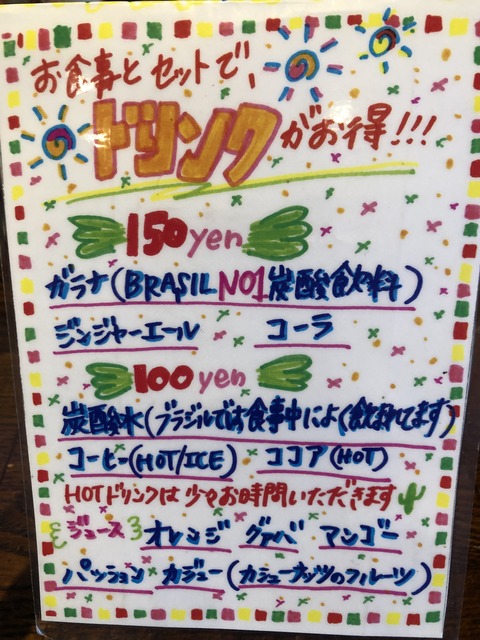 お食事とセットで、
ドリンクがお得!!!
150yen
ガラナ(BRASIL NO1炭酸飲料)
ジンジャーエール コーラ
100yen
炭酸水(ブラジルでお食事中によく飲まれてます)
コーヒー(HOT/ICE) ココア(HOT)
HOTドリンクは少々お時間いただきます
ジュース オレンジ グァバ マンゴー
パッション カジュー(カシューナッツのフルーツ)